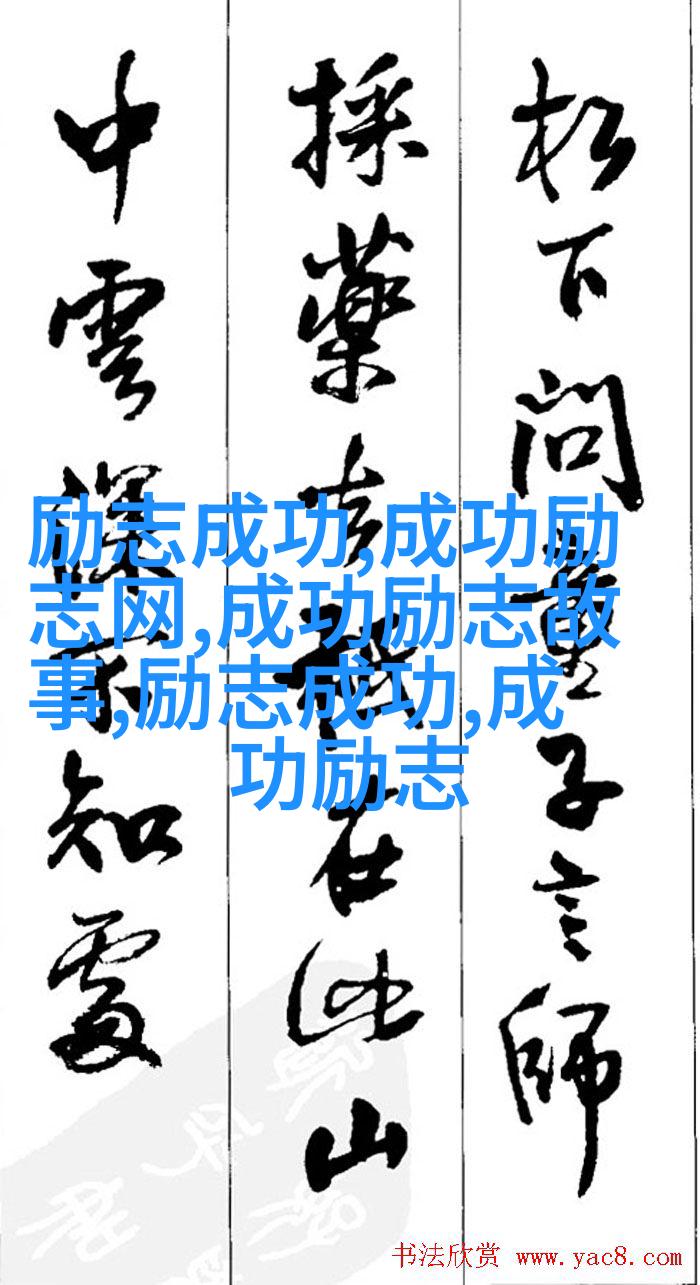 松下问童子言師
採藥去祇在此山
中雲深不知處
励志成功,成功励
志网,成功励志故
事,励志成功,成
功励志
书法欣赏 www.yac8.com